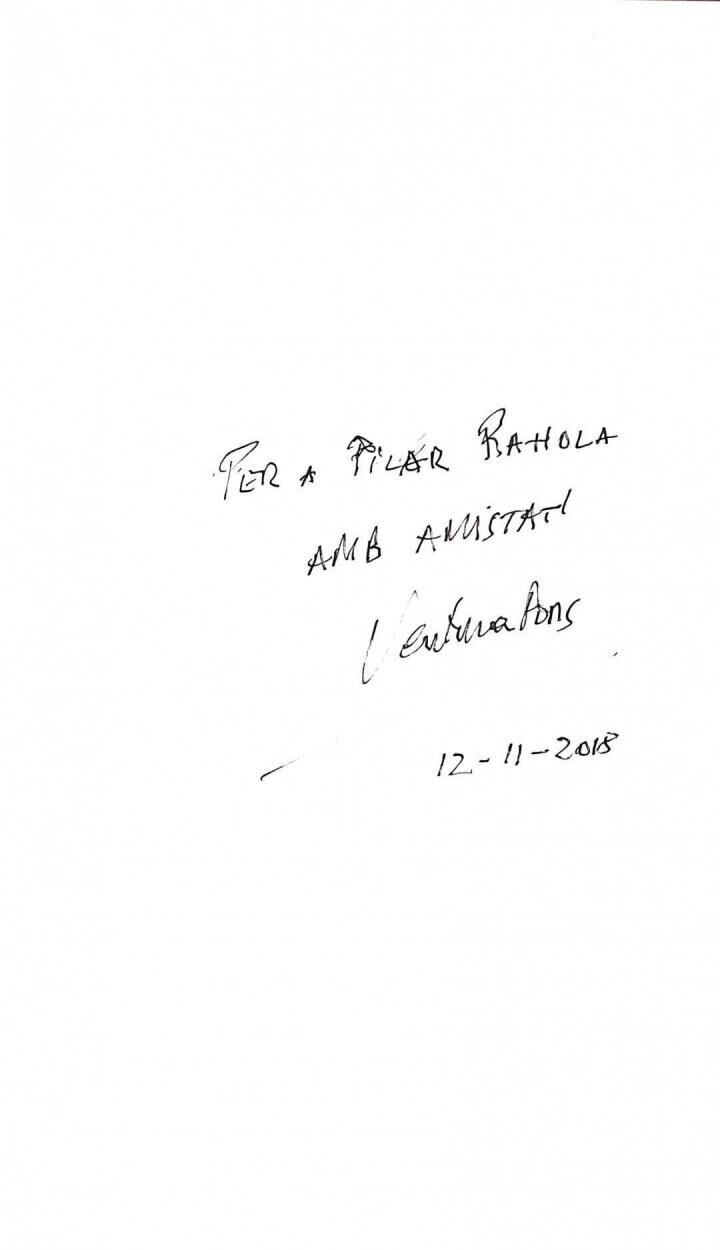 PER A PILAR RAHOLA
AMB AMISTAT
Ventura Pons
12-11-2018